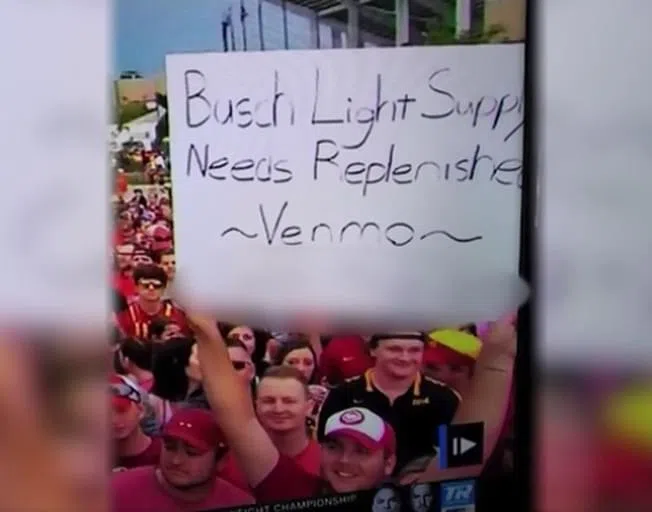 Busch Light Supply
Needs Replenished
~Venmo~
IGHT CHAMPIONSHIP
TR